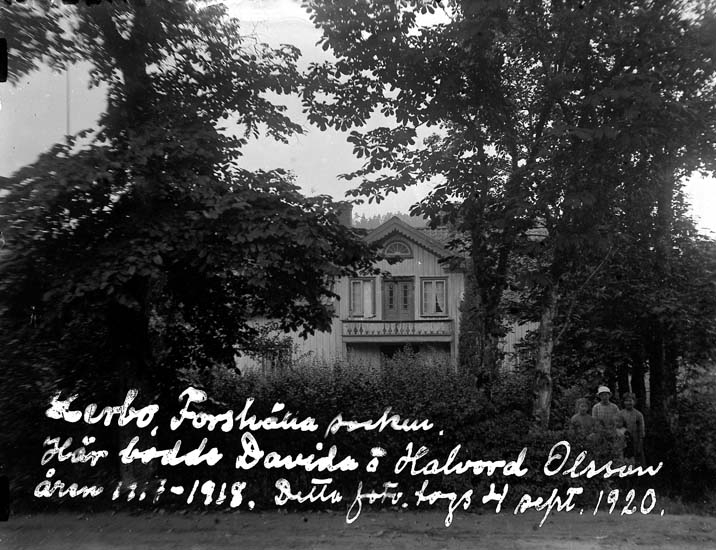 Lerbo, Forshälla socken.
Här bodde Davida o Halvord Olsson
åren -1918. Detta foto. togs 4 sept. 1920.